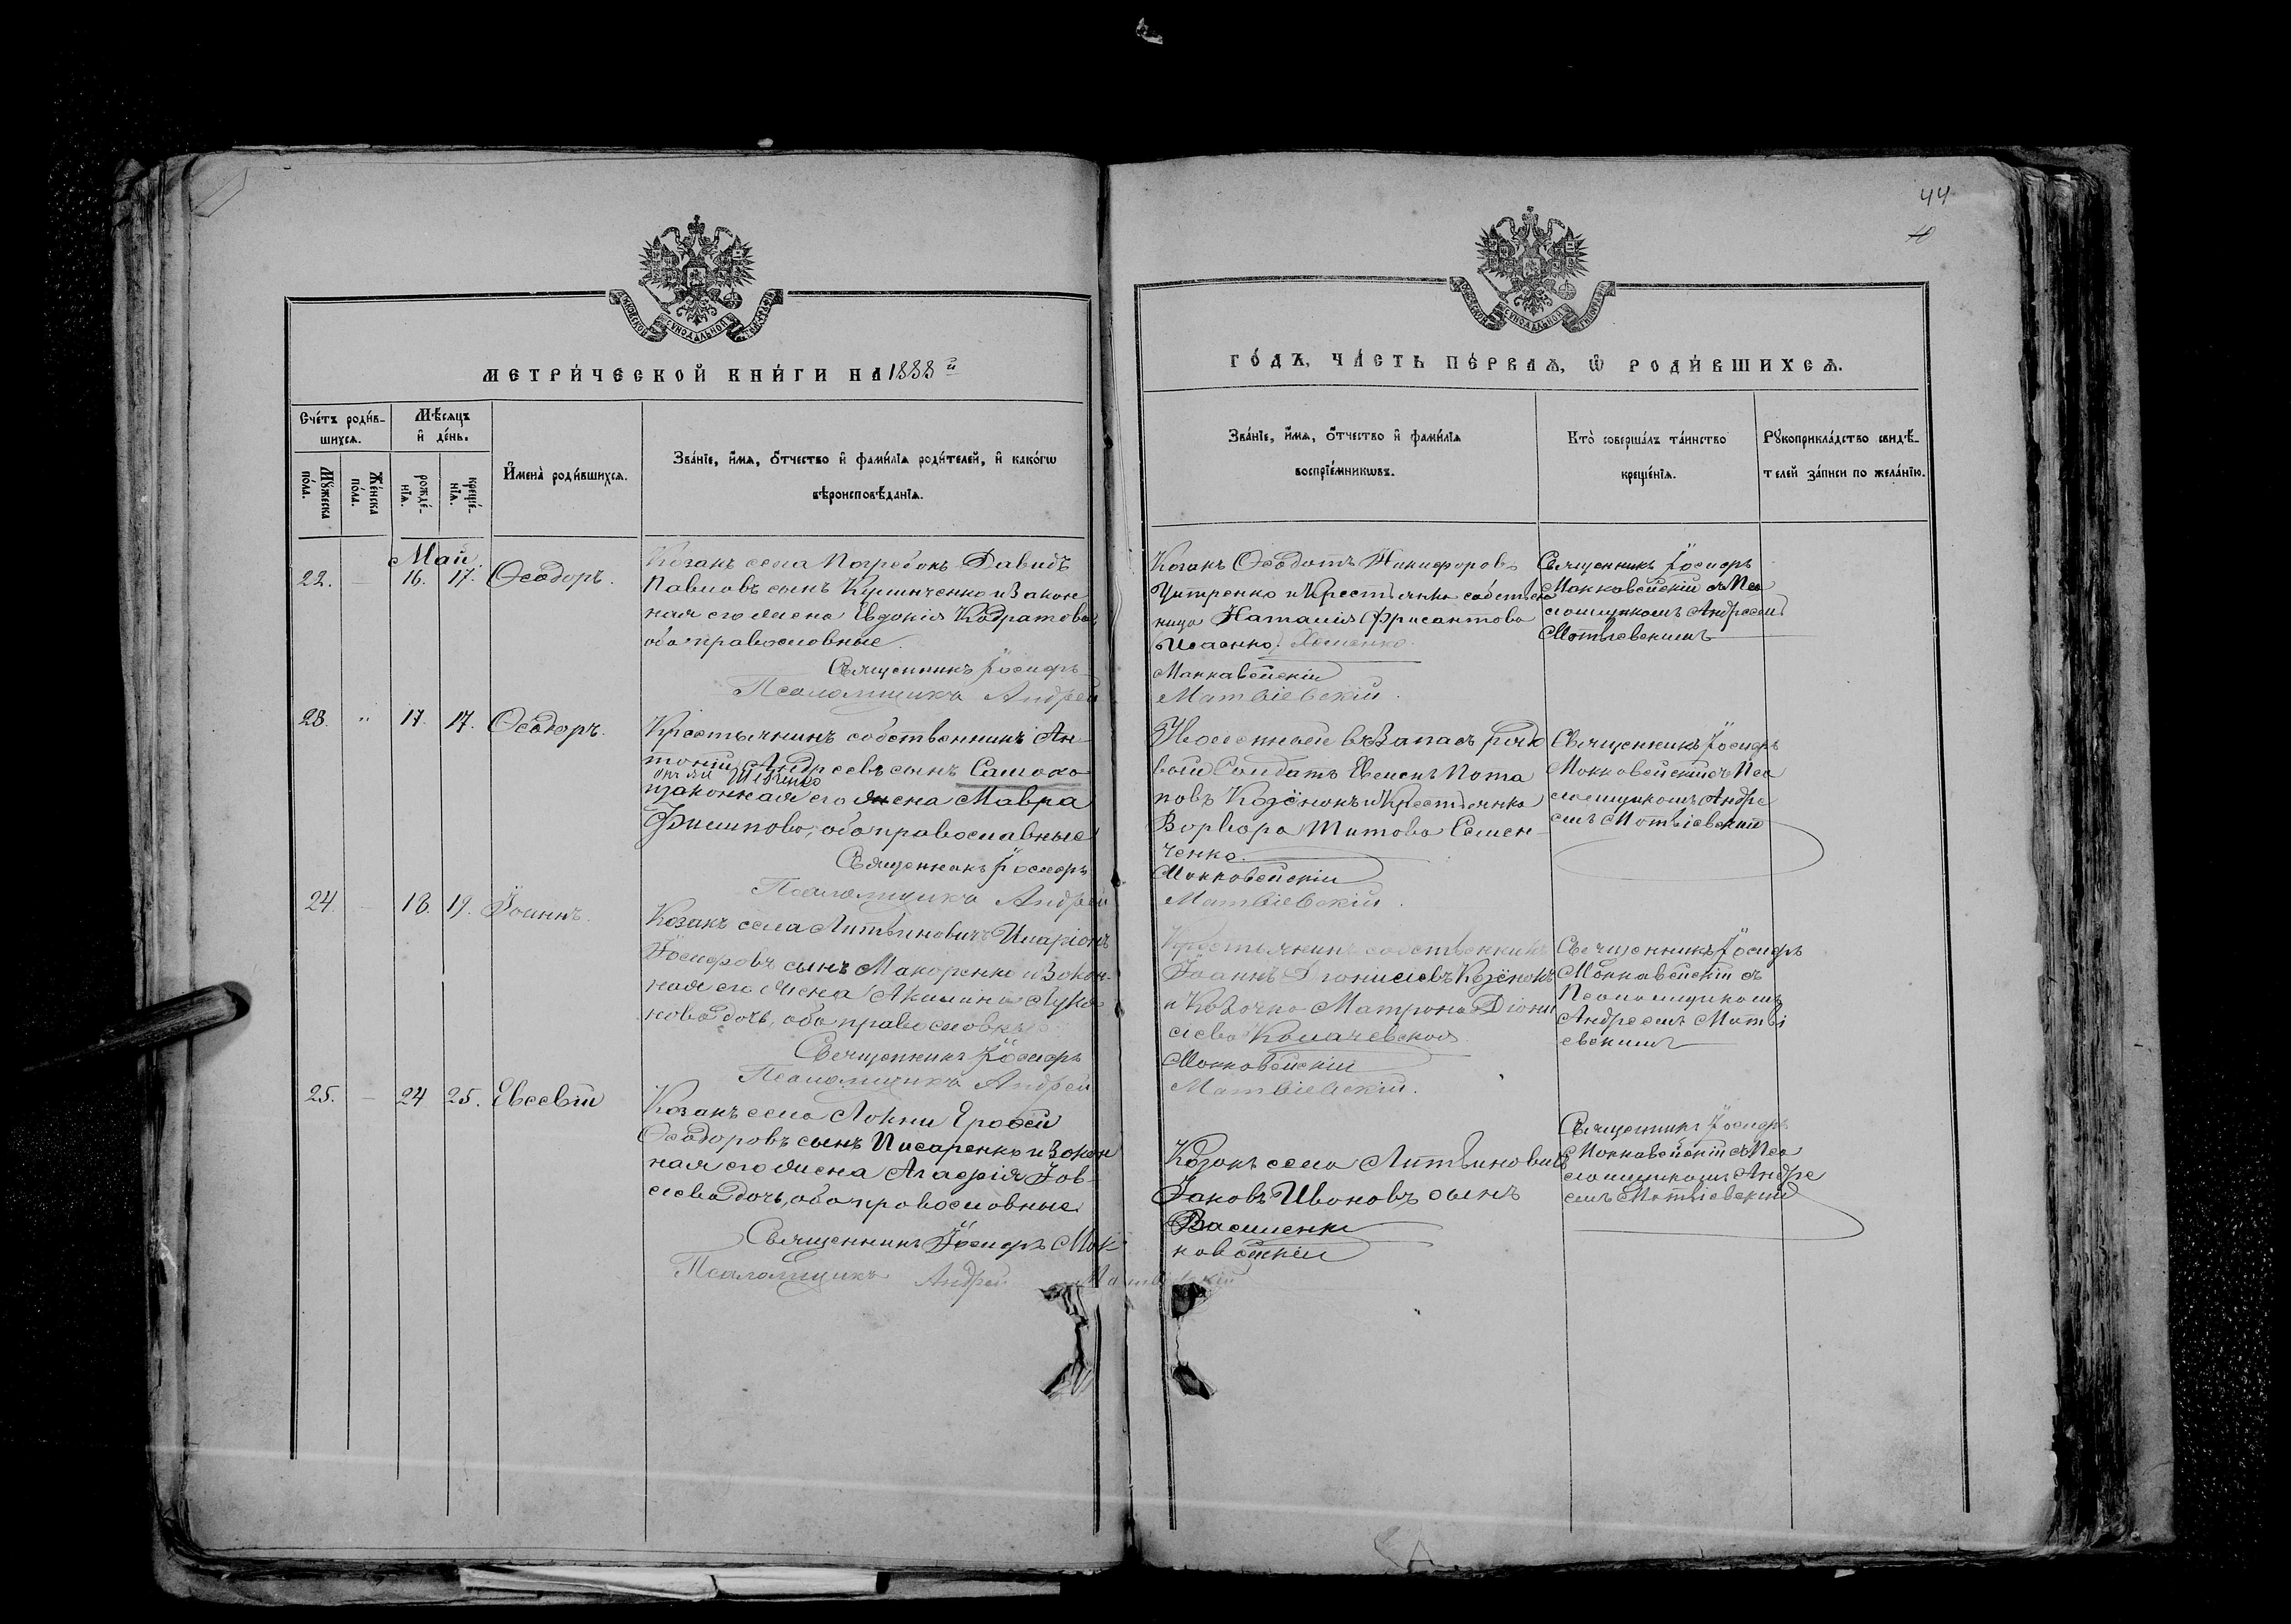 44
40
МОСКОВСКОЙ СУНОДАЛЬНОЙ ТИПОГРАФІИ
МОСКОВСКОЙ СУНОДАЛЬНОЙ ТИПОГРАФІИ
МЕТРИ́ЧЕСКОЙ КНИ́ГИ НА 1888й
ГО́ДЪ, ЧА́СТЬ ПЕ́РВАѦ, Ѡ҆ РОДИ́ВШИХСѦ.
Сче́тъ роди́в-
шихсѧ.
Мѣ́сѧцъ
и҆ де́нь.
Мꙋ́жеска
по́ла.
Же́нска
по́ла.
рожде́-
нїѧ.
креще́-
нїѧ.
И҆мена̀ роди́вшихсѧ.
Зва́нїе, и҆́мѧ, ѻ҆́тчество и҆ фами́лїѧ роди́телей, и҆ како́гѡ
вѣроисповѣ́данїѧ.
Зва́нїе, и҆́мѧ, ѻ҆́тчество и҆ фами́лїѧ
воспрїе́мникѡвъ.
Кто̀ соверша́лъ та́инство
креще́нїѧ.
Рꙋкоприкла́дство свидѣ́-
телей за́писи по жела́нїю.
Май.
22. — 16. 17. Ѳеодоръ.
Козакъ села Погребокъ Давидъ
Павловъ сынъ Кулинченко и Закон
ная его жена Евдокія Кодратова,
оба православные.
Священникъ Іосифъ
Псаломщикъ Андрей
Козакъ Ѳеодотъ Никифоровъ
и Крестьянка собствен
ница Наталія
Исаенко.
Маккавейскій
Матвіевскій.
Священникъ Іосифъ
Маккавейскій съ Пса
ломщикомъ Андреемъ
Матвіевскимъ
23. " 17. 17. Ѳеодоръ.
Крестьянинъ собственникъ Ан
тоній Андреевъ сынъ
и законная его жена Мавра
Филипова, оба православные
Священникъ Іосифъ
Псаломщикъ Андрей
Уволенный въ Запасъ рядо
вой Солдатъ Евменъ Пота
повъ Козёнокъ и Крестьянка
Варвара Титова Семен
ченко.
Маккавейскій
Матвіевскій.
Священникъ Іосифъ
Маккавейскій съ Пса
ломщикомъ Андре
емъ Матвіевским
24. — 18. 19. Іоаннъ.
Козакъ села Литвиновичъ Иларіонъ
Іосифовъ сынъ Макаренко и Закон-
ная его жена Акилина Луки
нова дочь, оба православные
Священникъ Іосифъ
Псаломщикъ Андрей
Крестьянинъ собственникъ
Іоаннъ Діонисіевъ Козёнокъ
и Козачка Матрона Діони
сіева Комачевская
Маккавейскій
Матвіевскій.
Священникъ Іосифъ
Маккавейскій съ
Псаломщикомъ
Андреемъ Матві
евскимъ
25. — 24 25. Евсевій
Козакъ села Локни Ерофей
Ѳеодоровъ сынъ Писаренко и Закон
ная его жена Агафія Іов-
лева дочь, оба православные.
Священникъ Іосифъ Мак
Псаломщикъ Андрей Матвіевскій
Козакъ села Литвиновичъ
Іаковъ Ивановъ сынъ
Василенко
кавейскій
Священникъ Іосифъ
Маккавейскій съ Пса
ломщикомъ Андре
емъ Матвіевским